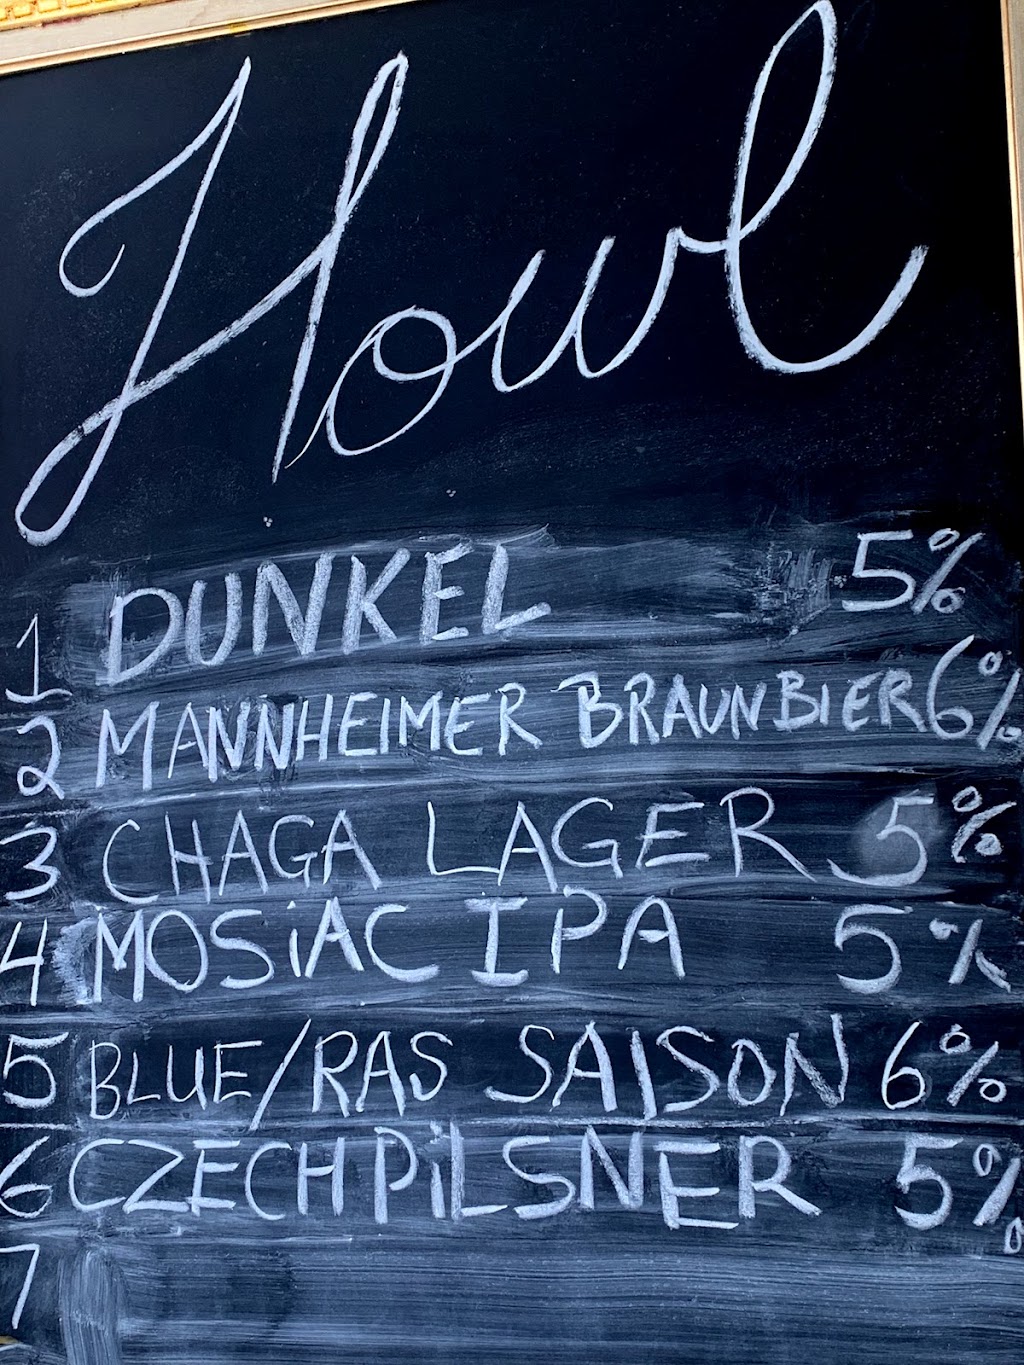 Howl
1 DUNKEL 5%
2 MANNHEIMER BRAUNBIER 6%
3 CHAGA LAGER 5%
4 MOSiAC IPA 5%
5 BLUE/RAS SAISON 6%
6 CZECH PiLSNER 5%
7